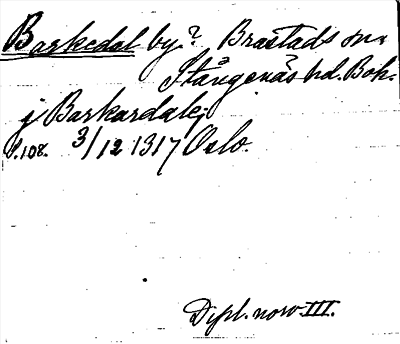 Barkedal by? Brastads sn.
Stångenäs hd. Boh.
j Barkardale;
s.108. 3/12 1317 Oslo.
Dipl. norv. III.